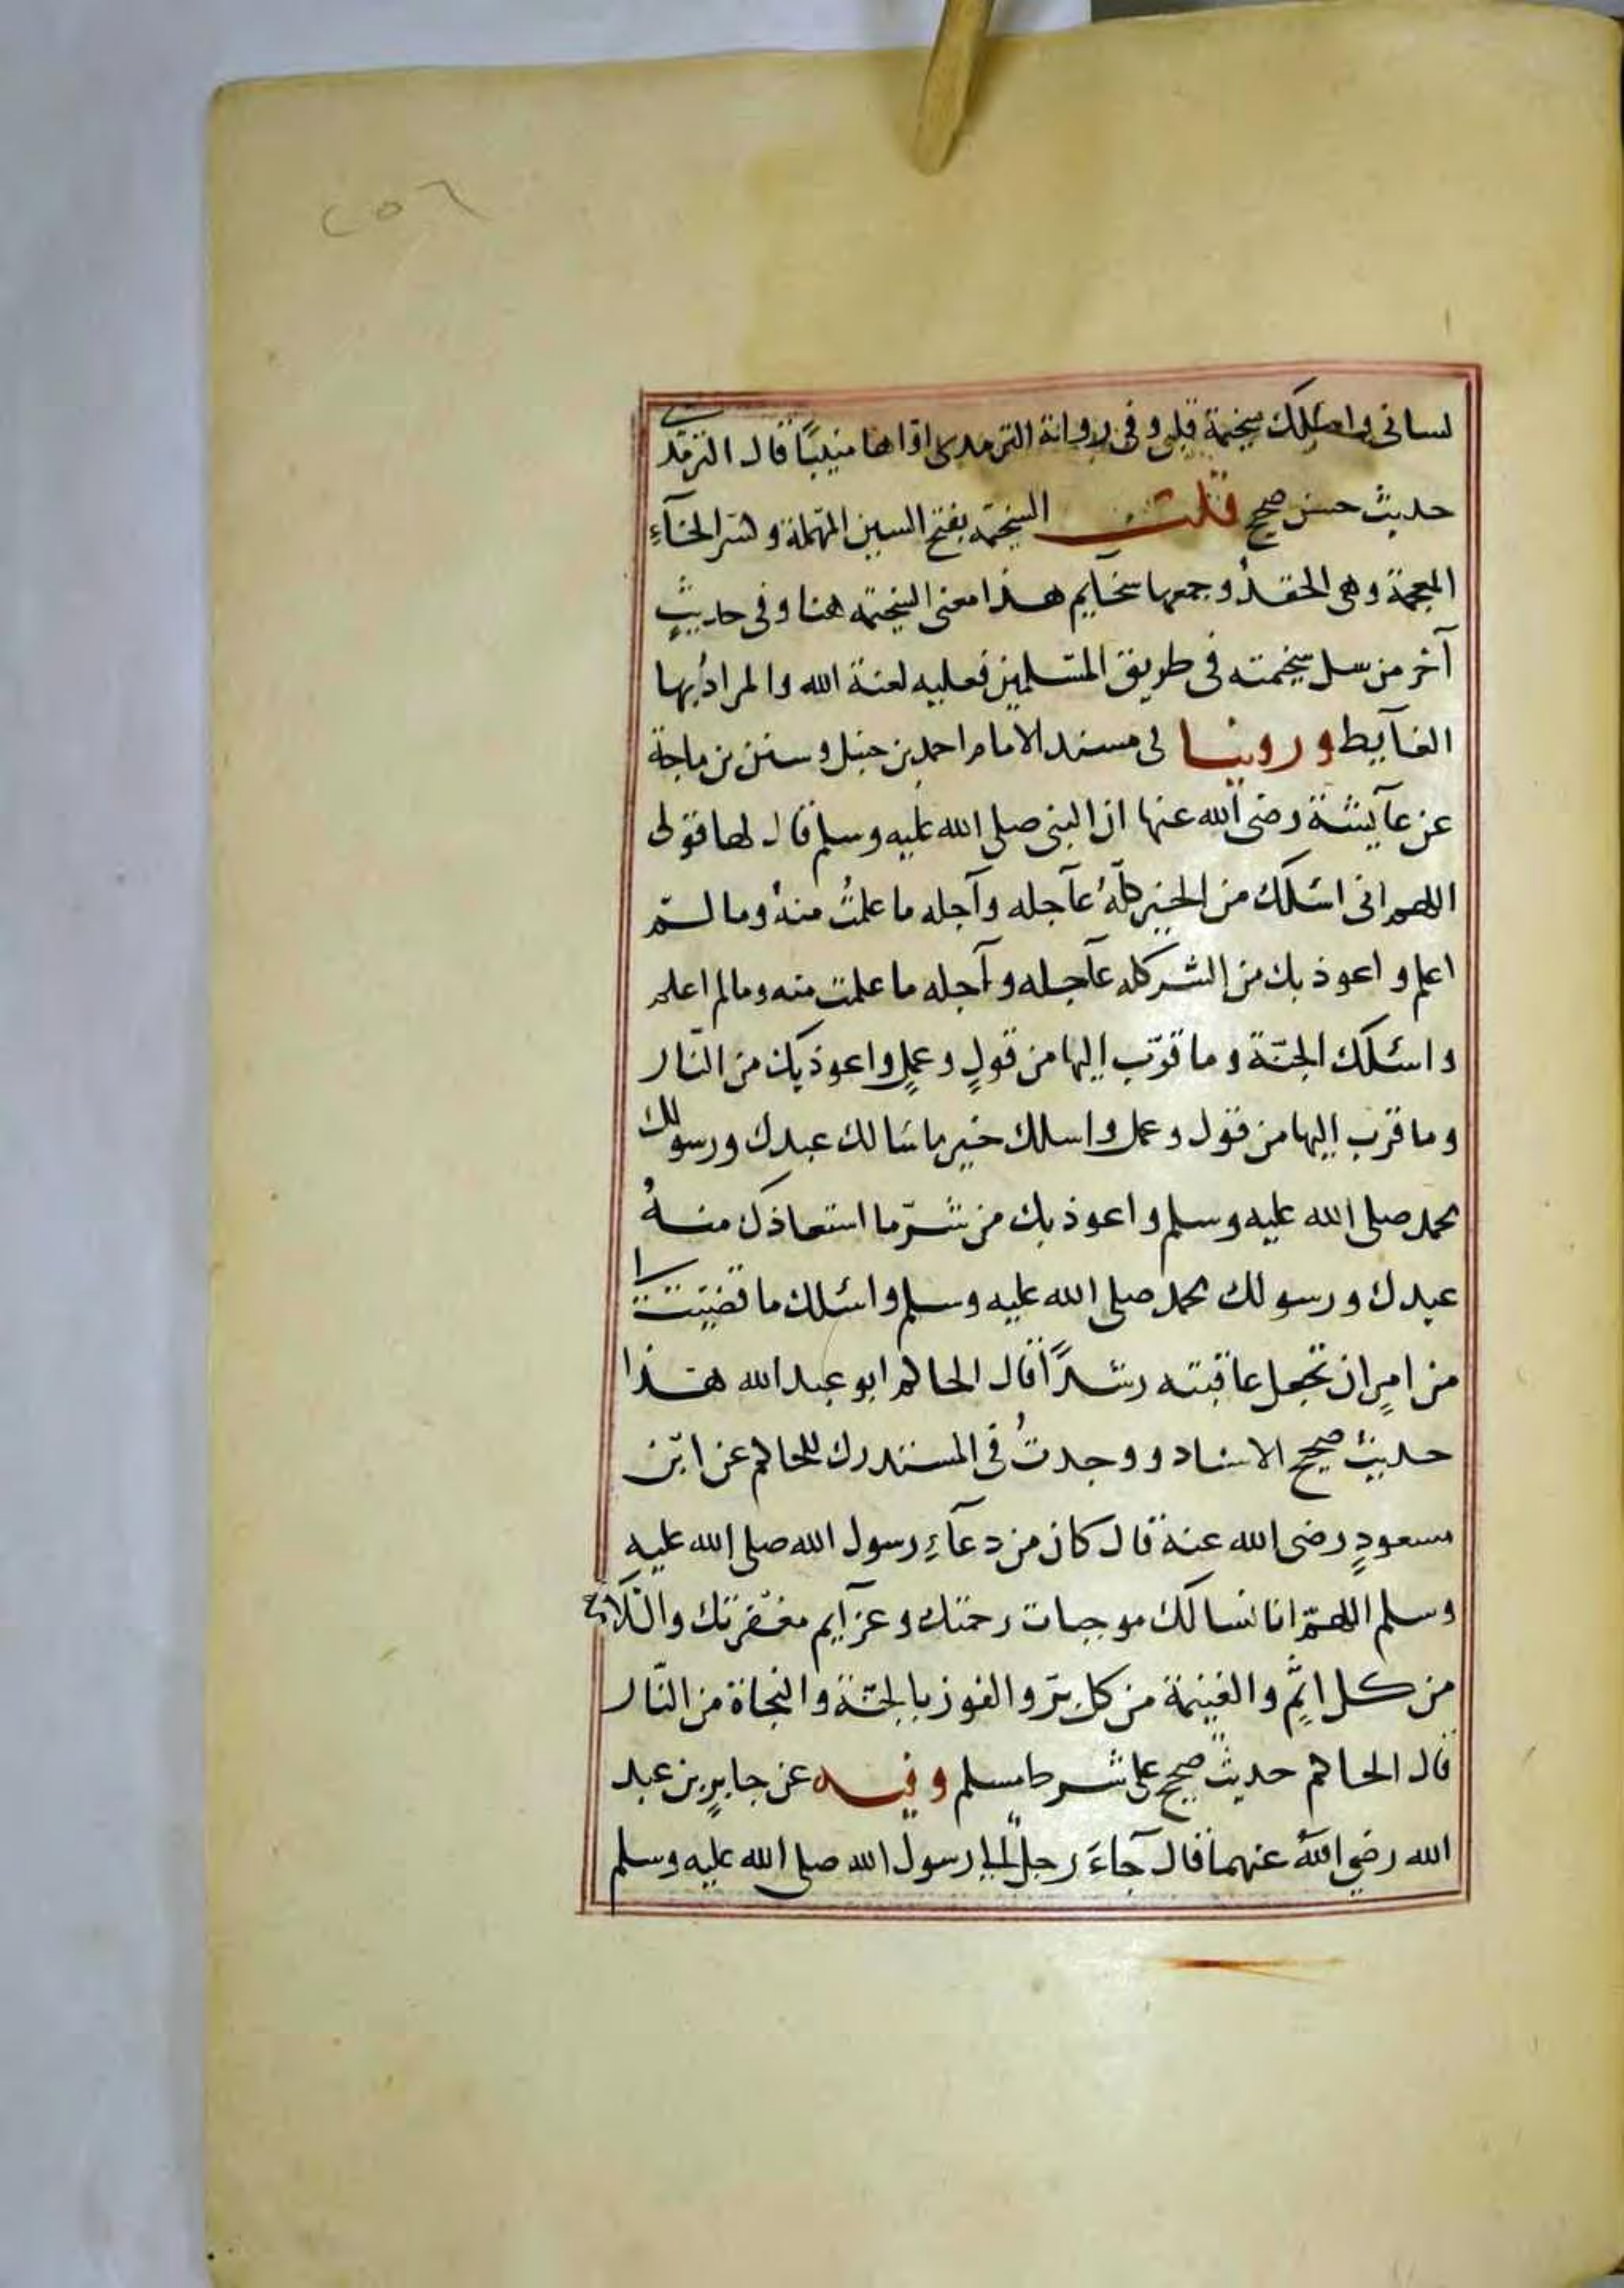 ٢٥٦
لسانى واسلل سخيمة قلبى وفى رواية الترمدى اواها منيبًا قال الترمدى
حديث حسن صحيح قلت السخيمة بفتح السين المهملة وكسر الخآءِ
المعجمة وهى الحقدُ وجمعها سخآيم هذا معنى السخيمة هنا وفى حديثٍ
آخر من سل سخيمته فى طريق المسلمين فعليه لعنة الله والمرادُ بها
الغآيط وروينا فى مسند الامام احمد بن حنبل وسنن بن ماجة
عن عآيشة رضى الله عنها ان النبى صلى الله عليه وسلم قال لها قولى
اللهم انى اسئلك من الخير كلّهُ عآجله وآجله ما علمتُ منهُ وما لم
اعلم و اعوذ بك من الشر كله عآجله وآجله ما علمت منه ومالم اعلم
واسئلك الجنّة وما قرّب اليها من قولٍ وعملٍ واعوذ بك من النّار
وما قرب اليها من قول وعمل واسلك خير ما سَالك عبدك ورسولك
محمد صلى الله عليه وسلم واعوذ بك من شرّ ما استعاذك منهُ
عبدك ورسولك محمد صلى الله عليه وسلم واسئلك ما قضيت لى
من امرٍ ان تجعل عاقبته رشدًا قال الحاكم ابو عبد الله هذا
حديث صحيح الاسناد ووجدتُ فى المستدرك للحاكم عن ابن
مسعودٍ رضى الله عنه قال كان من دعآءِ رسول الله صلى الله عليه
وسلم اللهمّ انا نسالك موجبات رحمتك وعزآيم مغفرتك والسّلامة
من كل اثمٍ والغنيمة من كل برّ والفوز بالجنّة والنجاة من النّار
قال الحاكم حديث صحيح على شرط مسلم وفيه عن جابرٍ بن عبد
الله رضي اللهُ عنهما قال جآءَ رجلٌ الى رسول الله صلى الله عليه وسلم